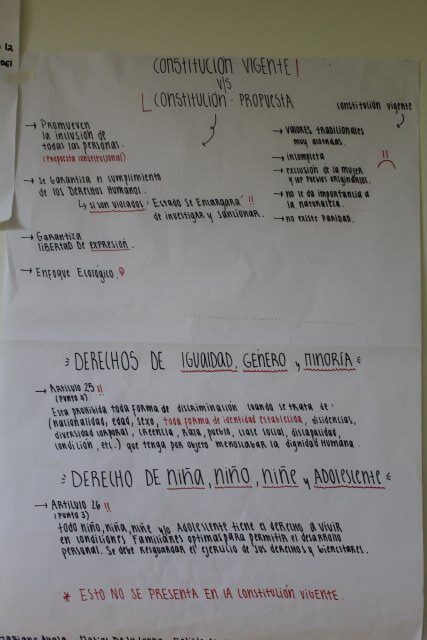 CONSTITUCIÓN VIGENTE
V/S
CONSTITUCIÓN - PROPUESTA
→ Promueven
la inclusión de
todas las personas.
(Propuesta constitucional)
→ Se garantiza el cumplimiento
de los Derechos Humanos.
↳ si son violados · Estado se encargará
de investigar y sancionar.
→ Garantiza
libertad de expresión.
→ Enfoque Ecológico.
constitución vigente
→ Valores tradicionales
muy acotados.
→ incompleta
→ exclusión de la mujer
y los pueblos originarios.
→ no le da importancia a
la naturaleza.
→ no existe paridad.
DERECHOS DE IGUALDAD, GÉNERO y MINORÍA
→ Artículo 25 !!
(Punto 4)
Esta prohibida toda forma de discriminación cuando se trata de
(nacionalidad, edad, sexo, toda forma de identidad establecida, disidencias,
diversidad corporal, creencia, raza, pueblo, clase social, discapacidad,
condición, etc.) que tenga por objeto menoscabar la dignidad humana.
DERECHO DE niña, niño, niñe y ADOLESCENTE
→ Artículo 26 !!
(Punto 3)
Todo niño, niña, niñe y/o Adolescente tiene el derecho a vivir
en condiciones familiares optimas para permitir el desarrollo
personal. Se debe resguardar el ejercicio de sus derechos y bienestares.
* ESTO NO SE PRESENTA EN LA CONSTITUCIÓN VIGENTE.